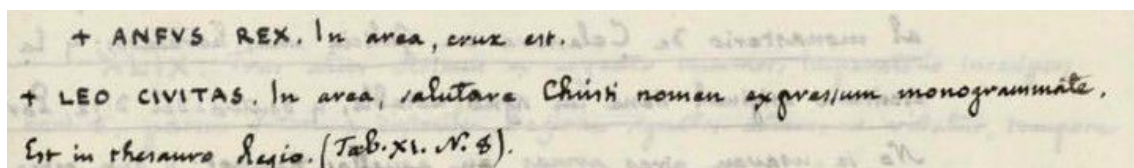 + ANFVS REX. In area, crux est.
+ LEO CIVITAS. In area, salutare Christi nomen expressum monogrammate.
Est in thesauro Regio. (Tab. XI. N. 8).